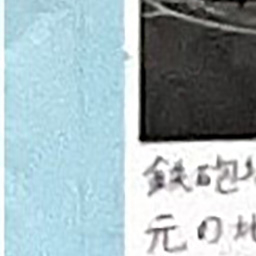 鉄砲
元の地